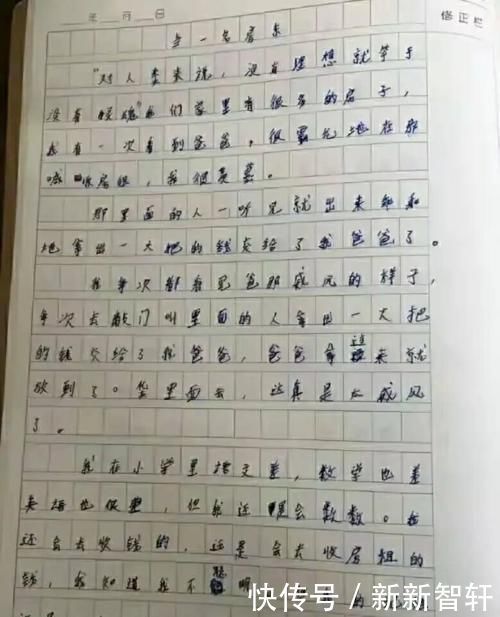 年 月 日
修正栏
当一名房东
"对人类来说，没有理想就等于
没有灵魂"我们家里有很多的房子，
我有一次看到爸爸，很霸气地在那
喊收房租，我很羡慕。
那里面的人一听见就出来
地拿出一大把的钱交给了我爸爸了。
我每次都看见爸那威风的样子，
每次去敲门叫里面的人拿出一大把
的钱交给了我爸爸，爸爸拿过来就
放到了。包里面去，这真是太威风
了。
我在小学里语文差，数学也差
英语也很差，但我还是会数数。我
还会去收钱的，还是会去收房租的
钱，我知道我不聪明
快传号／新新智轩